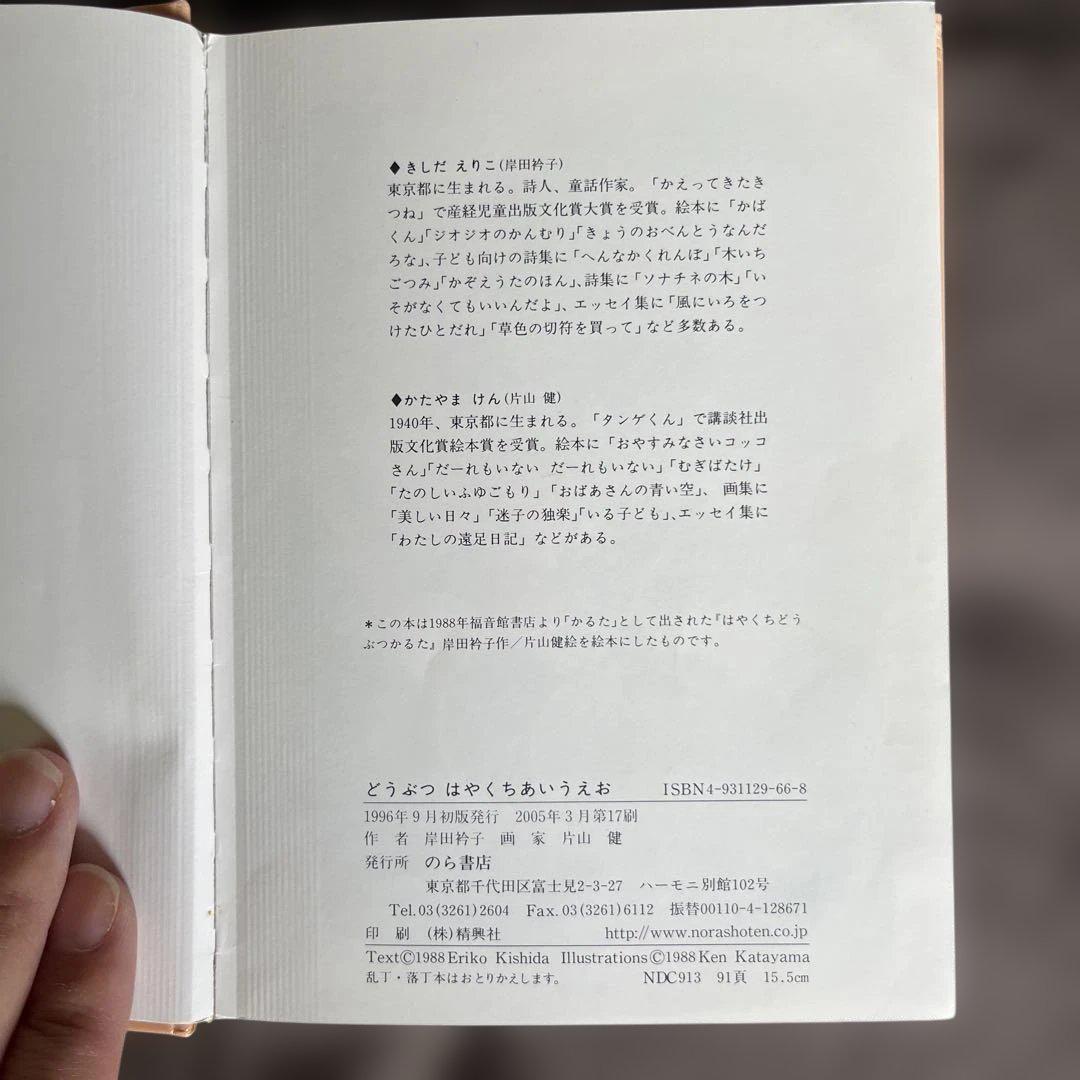 ♦きしだ えりこ(岸田衿子)
東京都に生まれる。詩人、童話作家。「かえってきたき
つね」で産経児童出版文化賞大賞を受賞。絵本に「かば
くん」「ジオジオのかんむり」「きょうのおべんとうなんだ
ろな」、子ども向けの詩集に「へんなかくれんぼ」「木いち
ごつみ」「かぞえうたのほん」、詩集に「ソナチネの木」「い
そがなくてもいいんだよ」、エッセイ集に「風にいろをつ
けたひとだれ」「草色の切符を買って」など多数ある。
♦かたやま けん(片山 健)
1940年、東京都に生まれる。「タンゲくん」で講談社出
版文化賞絵本賞を受賞。絵本に「おやすみなさいコッコ
さん」「だーれもいない だーれもいない」「むぎばたけ」
「たのしいふゆごもり」「おばあさんの青い空」、画集に
「美しい日々」「迷子の独楽」「いる子ども」、エッセイ集に
「わたしの遠足日記」などがある。
*この本は1988年福音館書店より「かるた」として出された『はやくちどう
ぶつかるた』岸田衿子作／片山健絵を絵本にしたものです。
どうぶつ はやくちあいうえお ISBN4-931129-66-8
1996年9月初版発行 2005年3月第17刷
作 者 岸田衿子 画 家 片山 健
発行所 のら書店
東京都千代田区富士見2-3-27 ハーモニ別館102号
Tel.03(3261)2604 Fax.03(3261)6112 振替00110-4-128671
印 刷 (株)精興社 http://www.norashoten.co.jp
Text©1988 Eriko Kishida Illustrations©1988 Ken Katayama
乱丁・落丁本はおとりかえします。 NDC913 91頁 15.5cm